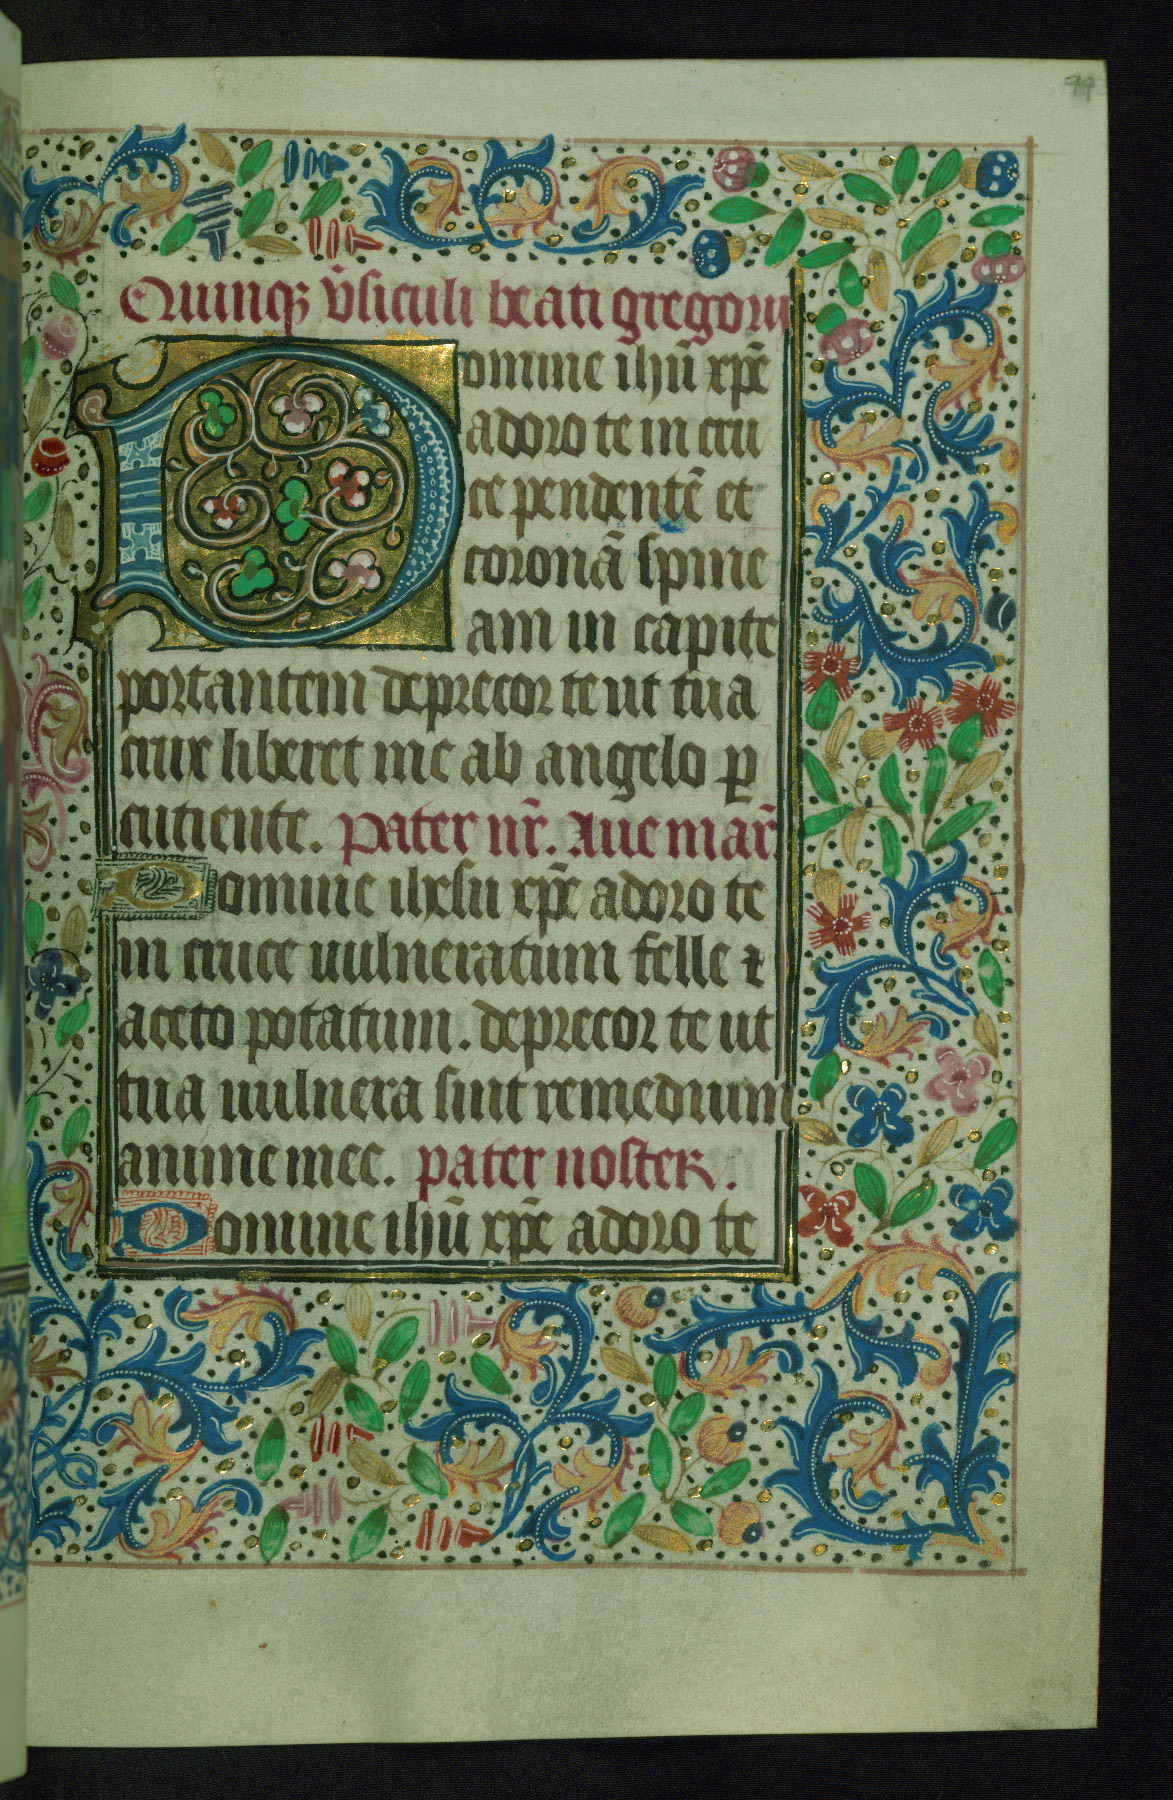 99
Quinqꝫ v̄siculi beati gregorii
Domine ihū xp̄e
adoro te in cru
ce pendentē et
coronā spine
am in capite
portantem deprecor te ut tua
crux liberet me ab angelo ꝑ
cutiente. Pater nr̄. Aue mar̄
Domine ihesu xp̄e adoro te
in cruce uulneratum felle ⁊
aceto potatum. deprecor te ut
tua uulnera sint remedium
anime mee. pater noster.
Domine ihū xp̄e adoro te